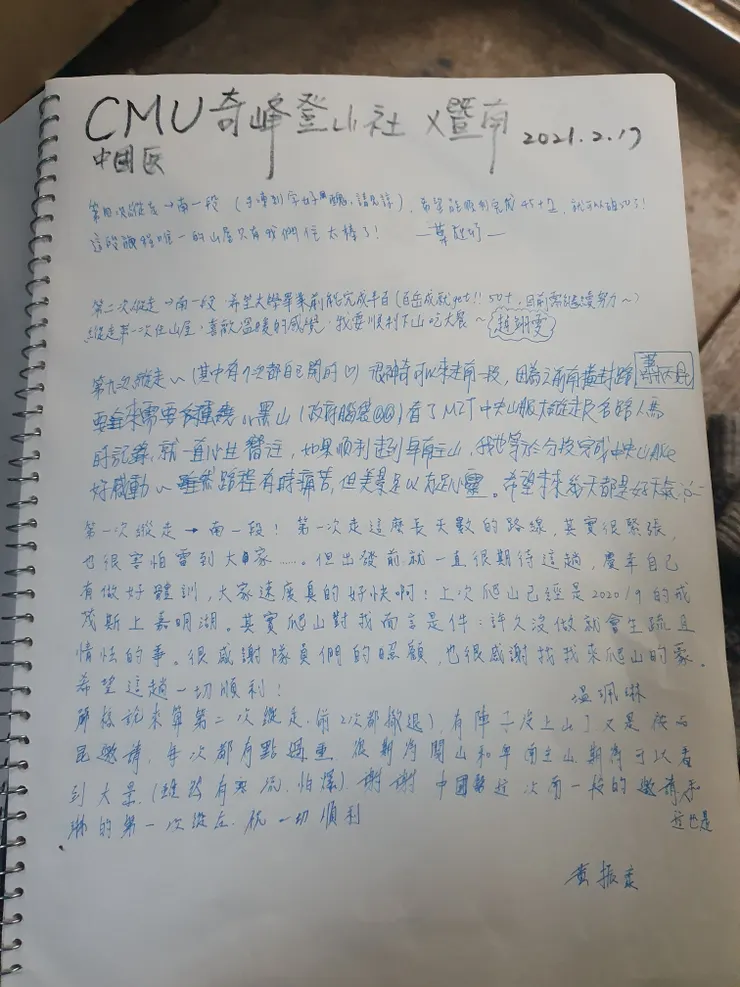 CMU 奇峰登山社 X 暨南 2021.2.17
中國医
第四次縱走→南一段 (手凍到字好醜,請見諒), 希望能順利完成45+2, 就可以
這段旅程唯一的山屋只有我們住 太棒了!
第二次縱走→南一段 希望大學畢業前能完成半百(百岳成就get!! 50+, 目前需繼續努力~)
縱走第一次住山屋,喜歡溫暖的感覺,我要順利下山吃大餐~ 趙翊雯
第九次縱走~ (其中有7次都自己開的) 很神奇可以來走南一段, 因為之前南橫封路
要來需要 繞 黑山 (政府腦袋) 看了MIT中央山脈大縱走
時記錄, 就一直 關注, 如果順利走到卑南主山, 我也等於分段完成中央山脈
好感動~ 雖然路程有時痛苦, 但美景足以 心靈。希望未來幾天都是好天氣
第一次縱走→南一段! 第一次走這麼長天數的路線,其實很緊張,
也很害怕雷到大家……。但出發前就一直很期待這趟,慶幸自己
有做好體訓,大家速度真的好快啊!上次爬山已經是2020/9的戒
茂斯上嘉明湖。其實爬山對我而言是件:許久沒做就會生疏且
情怯的事。很感謝隊員們的照顧,也很感謝找我來爬山的豪。
希望這趟一切順利! 溫珮琳
嚴格說來算第二次縱走(前2次都撤退), 有陣子沒上山了又是
邀請, 每次都有點 重, 很期待關山和卑南主山, 期待可以看
到大景, (雖說有寒流,怕爆). 謝謝 中國醫這次南一段的邀請
琳的第一次縱走. 祝一切順利 這也是
黃振